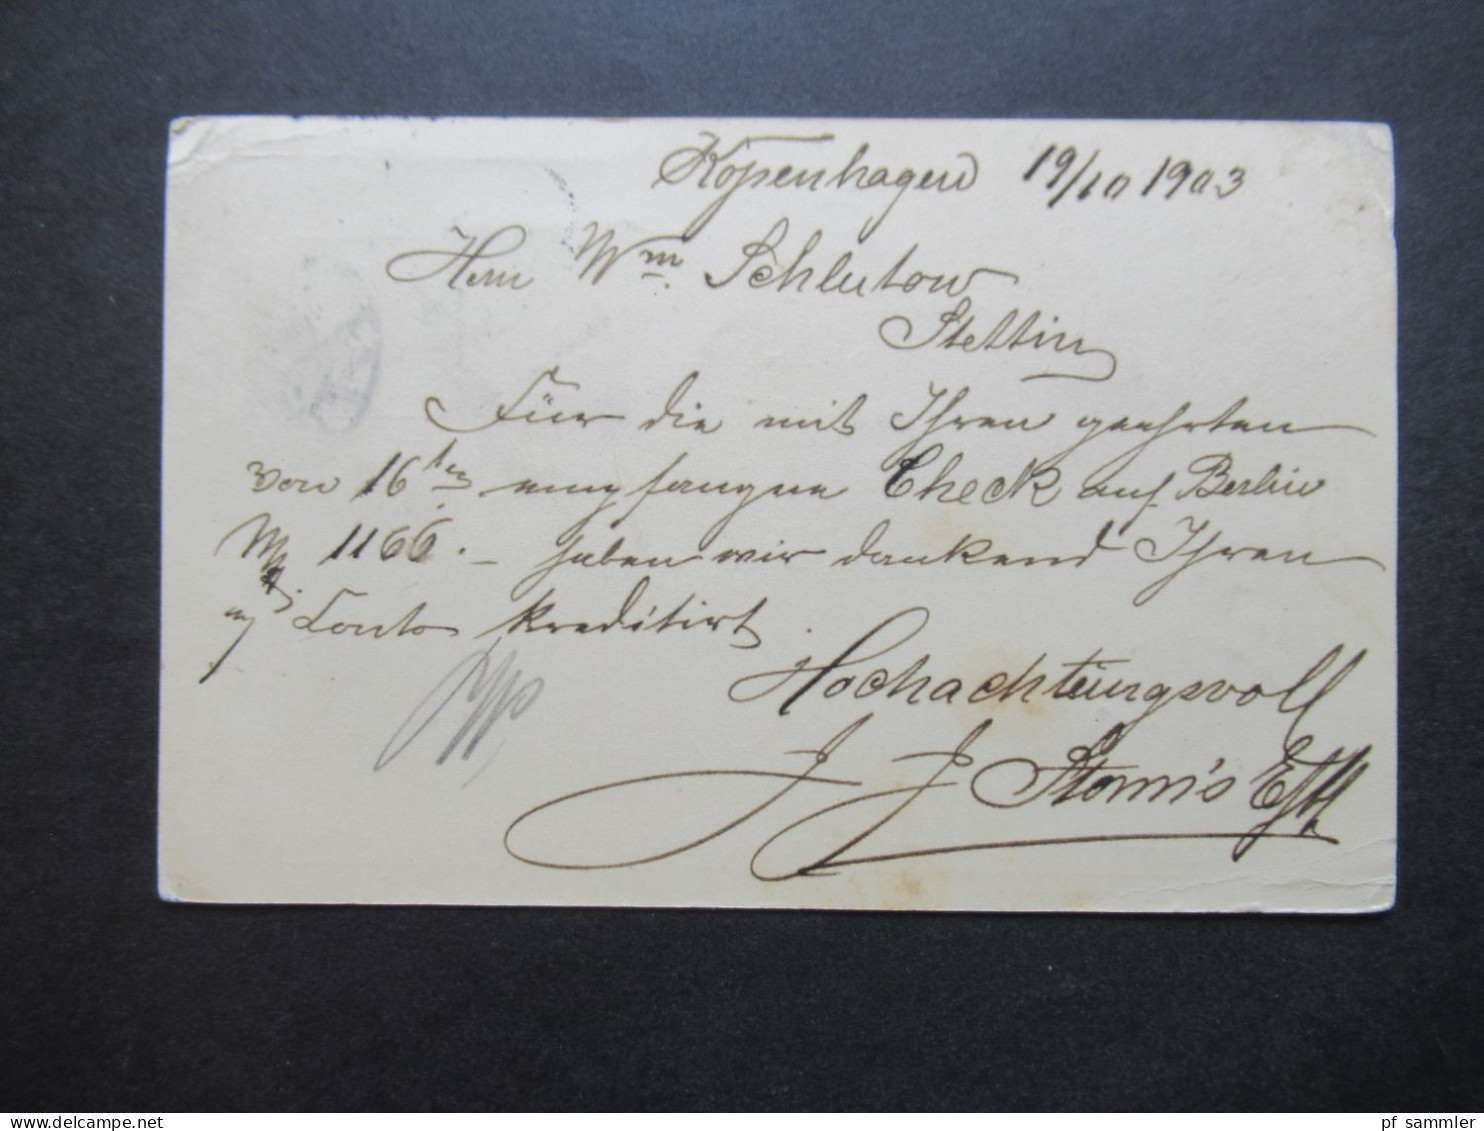 Kopenhagen 19/10 1903
Herrn Wm Schlutow
Stettin
Für die mit Ihren geehrten
von 16ten empfangene Check auf Berlin
M 1166. – haben wir dankend Ihren
Conto kreditirt.
Hochachtungsvoll
J J
pf sammler
www.delcampe.net